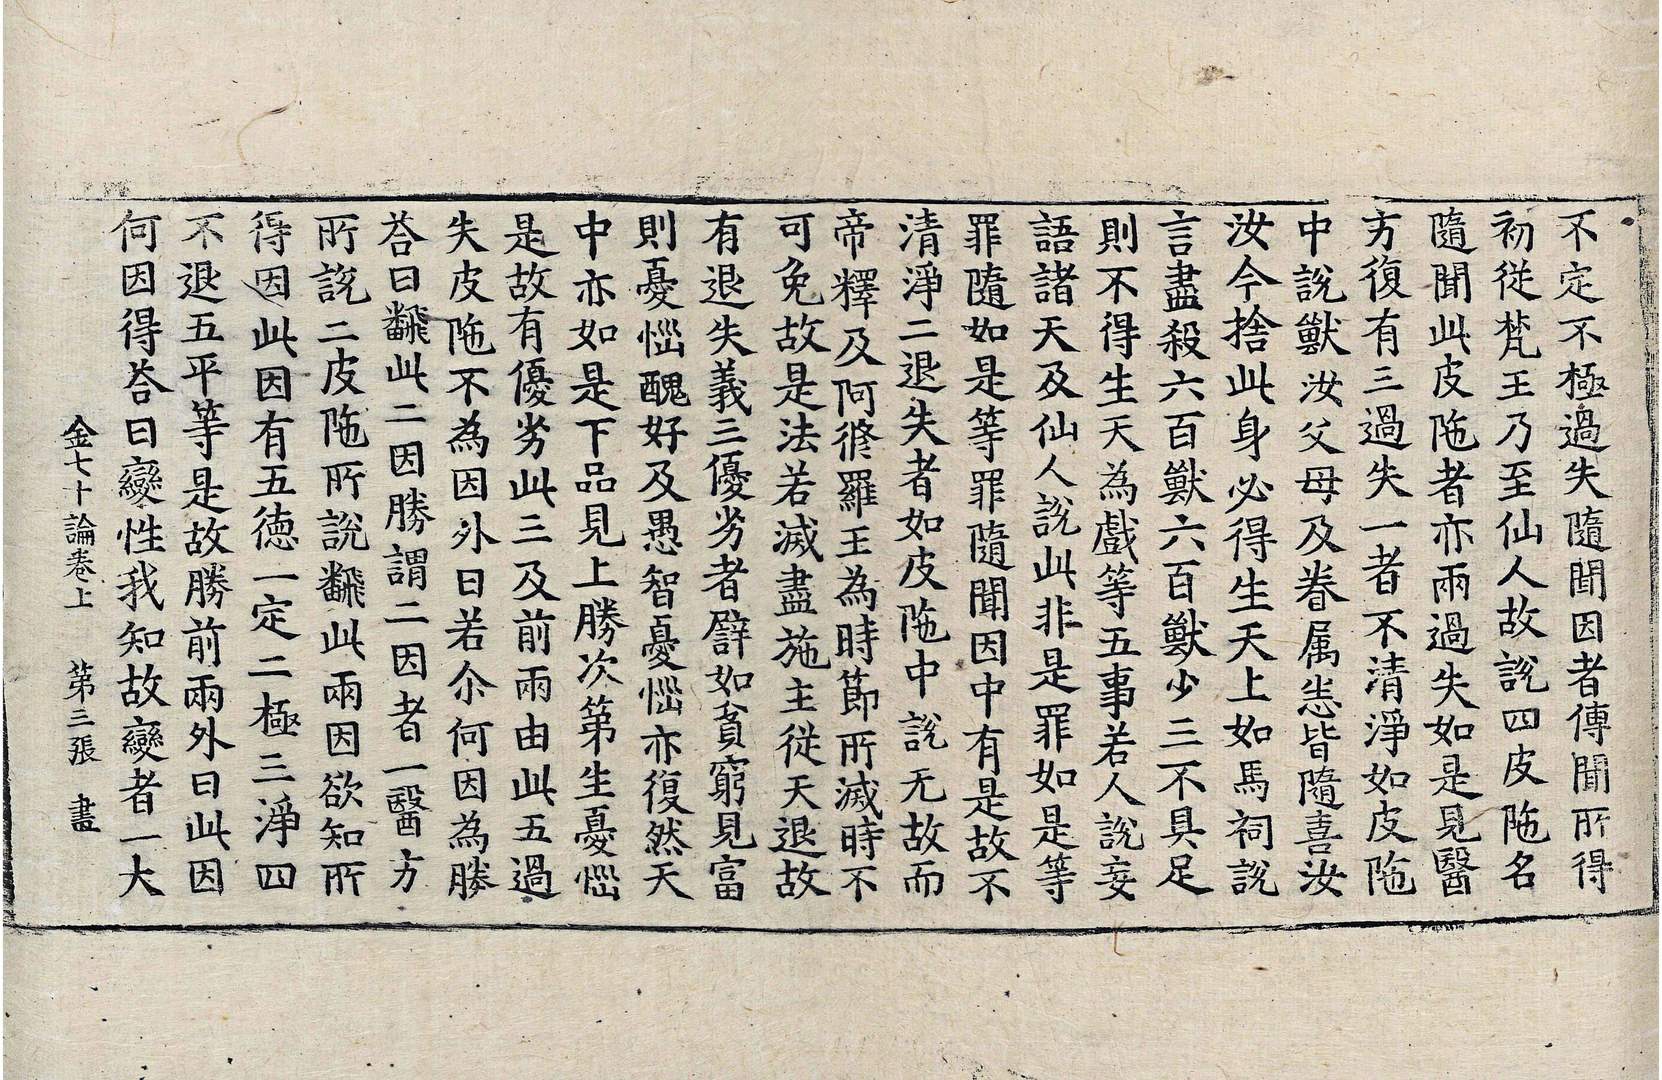 不定不極過失隨聞因者傳聞所得
初從梵王乃至仙人故說四皮陁名
隨聞此皮陁者亦兩過失如是見醫
方復有三過失一者不清淨如皮陁
中說獸汝父母及眷属恙皆隨喜汝
汝今捨此身必得生天上如馬祠說
言盡殺六百獸六百獸少三不具足
則不得生天為戲等五事若人說妄
語諸天及仙人說此非是罪如是等
罪隨如是等罪隨聞因中有是故不
清淨二退失者如皮陁中說无故而
帝釋及阿脩羅王為時節所滅時不
可免故是法若滅盡施主從天退故
有退失義三優劣者譬如貧窮見富
則憂惱醜好及愚智憂惱亦復然天
中亦如是下品見上勝次第生憂惱
是故有優劣此三及前兩由此五過
失皮陁不為因外曰若尒何因為勝
荅曰飜此二因勝謂二因者一醫方
所說二皮陁所說飜此兩因欲知所
得因此因有五德一定二極三淨四
不退五平等是故勝前兩外曰此因
何因得荅曰變性我知故變者一大
金七十論卷上 第三張 盡